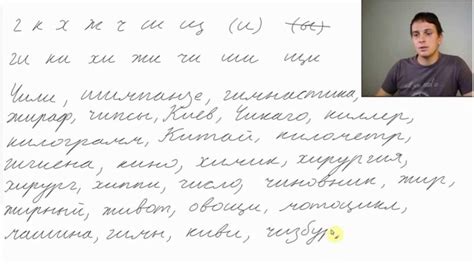 г к х ж ч ш щ (и) (ы)
ги ки хи жи чи ши щи
Чили, шимпанзе, гимнастика,
жираф, чипсы, Киев, Чикаго, киллер,
килограмм, Китай, километр,
гигиена, кино, химик, хирургия,
хирург, хиппи, число, чиновник, жир,
жирный, живот, овощи, мотоцикл,
машина, гимн, киви, чизбур,